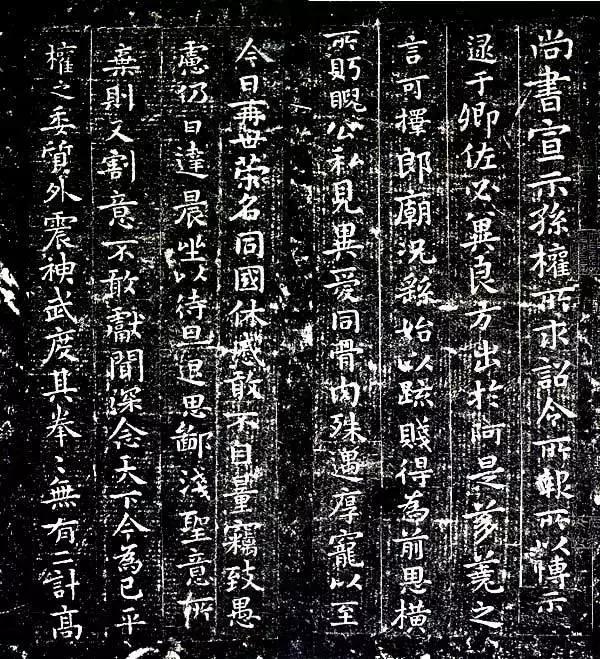 尚書宣示孫權所求詔令所報所以博示
逮于卿佐必冀良方出於阿是芻蕘之
言可擇郎廟況繇始以疏賤得為前恩橫
所貺睨公私見異愛同骨肉殊遇厚寵以至
今日再世榮名同國休慼敢不自量竊致愚
慮仍日達晨坐以待旦退思鄙淺聖意所
棄則又割意不敢獻聞深念天下今為已平
權之委質外震神武度其拳々無有二計高